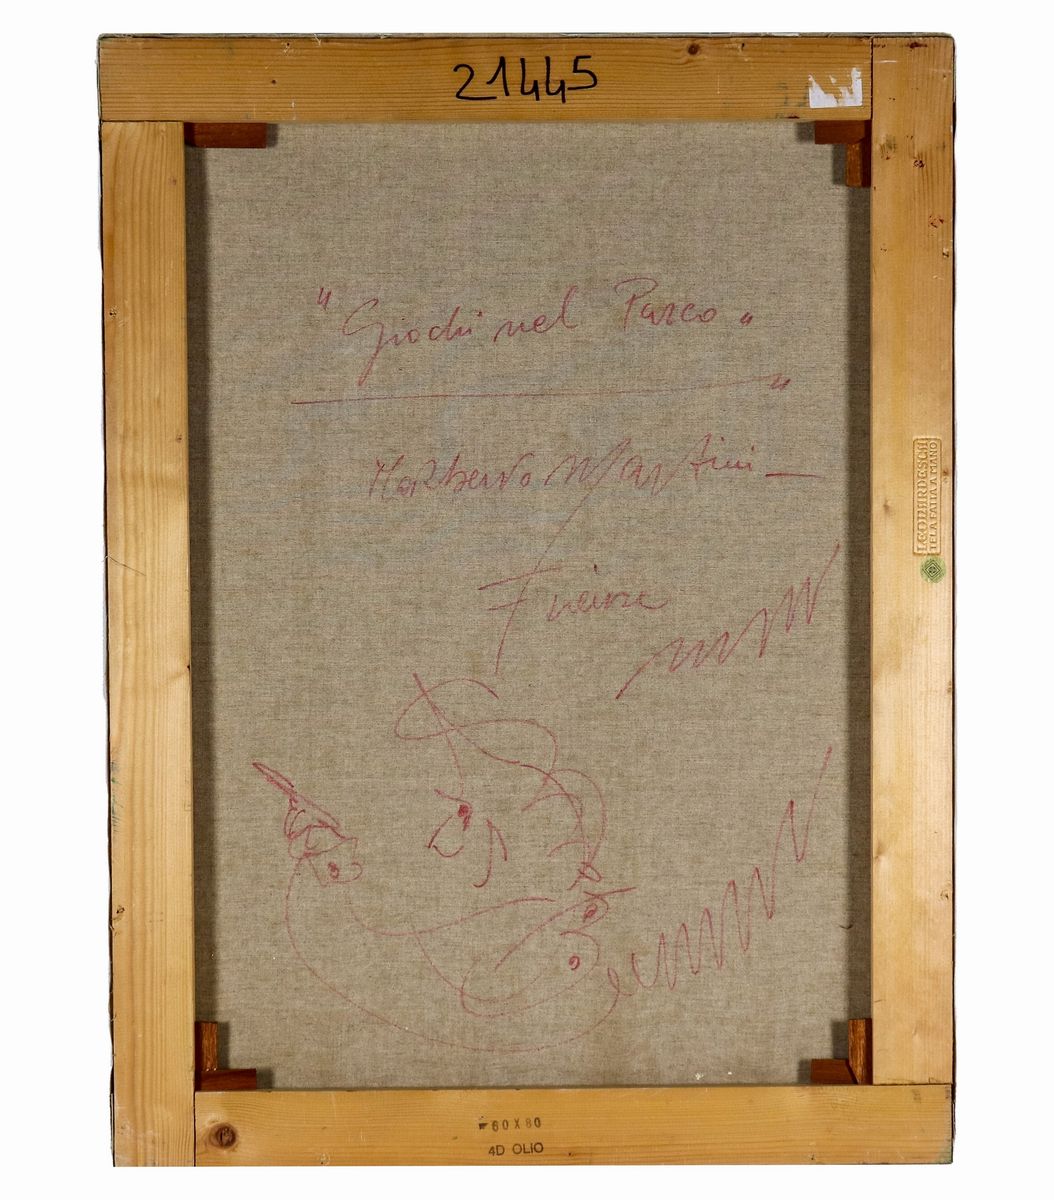 21445
"Giochi nel Parco"
"
Norberto Martini
Firenze
LEONARDESCH
TELA FATTA A MANO
60X80
4D OLIO